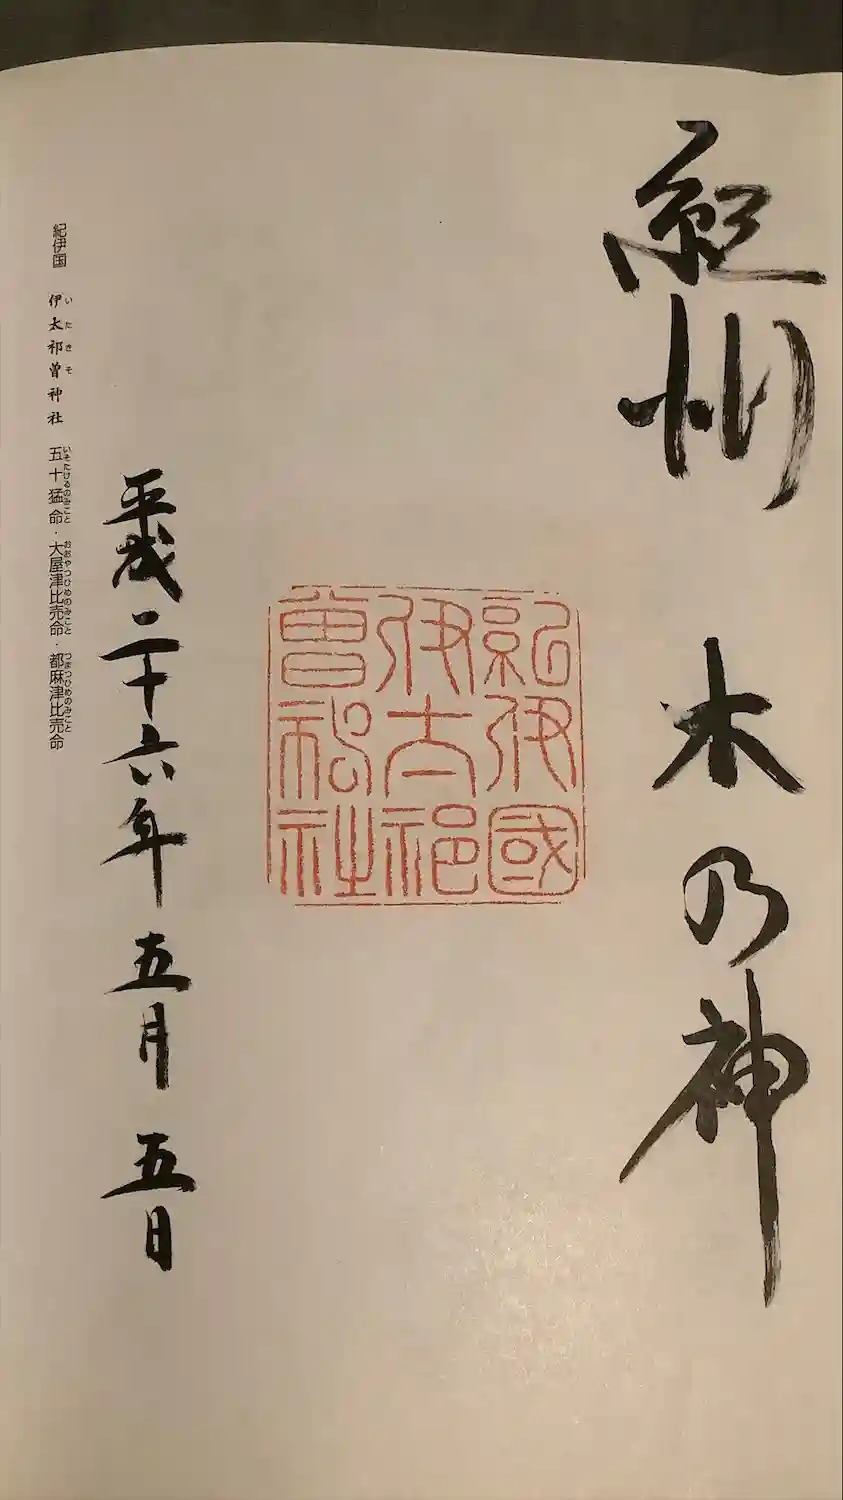 紀州 木乃神
紀伊國
伊太祁
曽神社
平成二十六年五月五日
紀伊国 伊太祁曽神社 五十猛命・大屋津比売命・都麻津比売命
いたきそ いそたけるのみこと おおやつひめのみこと つまつひめのみこと